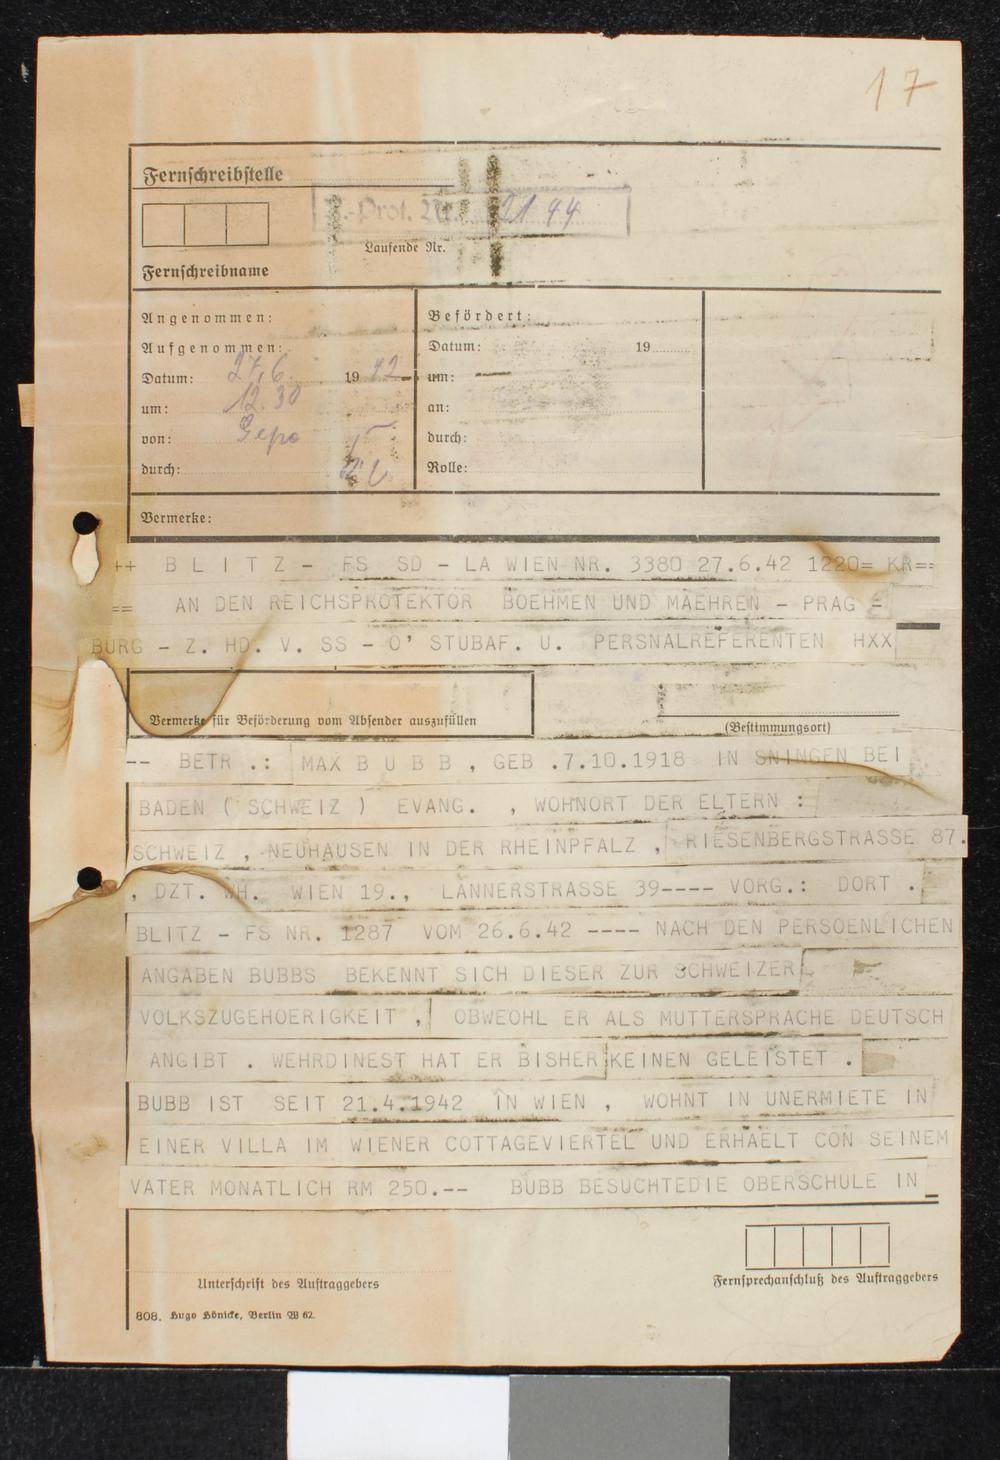 17
Fernschreibstelle
-Prot. Nr. 2144
Laufende Nr.
Fernschreibname
Angenommen:
Aufgenommen:
Datum: 27.6. 19 42
um: 12.30
von: Gepo
durch:
Befördert:
Datum: 19
um:
an:
durch:
Rolle:
Vermerke:
++ B L I T Z - FS SD - LA WIEN NR. 3380 27.6.42 1220= KR==
== AN DEN REICHSPROTEKTOR BOEHMEN UND MAEHREN - PRAG -
BURG - Z. HD. V. SS - O' STUBAF. U. PERSNALREFERENTEN HXX
Vermerke für Beförderung vom Absender auszufüllen
(Bestimmungsort)
-- BETR .: MAX B U B B , GEB .7.10.1918 IN SNINGEN BEI
BADEN ( SCHWEIZ ) EVANG. , WOHNORT DER ELTERN :
SCHWEIZ , NEUHAUSEN IN DER RHEINPFALZ , RIESENBERGSTRASSE 87.
, DZT. WH. WIEN 19., LANNERSTRASSE 39---- VORG.: DORT .
BLITZ - FS NR. 1287 VOM 26.6.42 ---- NACH DEN PERSOENLICHEN
ANGABEN BUBBS BEKENNT SICH DIESER ZUR SCHWEIZER
VOLKSZUGEHOERIGKEIT , OBWEOHL ER ALS MUTTERSPRACHE DEUTSCH
ANGIBT . WEHRDINEST HAT ER BISHER KEINEN GELEISTET .
BUBB IST SEIT 21.4.1942 IN WIEN , WOHNT IN UNERMIETE IN
EINER VILLA IM WIENER COTTAGEVIERTEL UND ERHAELT CON SEINEM
VATER MONATLICH RM 250.-- BUBB BESUCHTEDIE OBERSCHULE IN
Unterschrift des Auftraggebers
Fernsprechanschluß des Auftraggebers
808. Hugo Hönicke, Berlin W 62.